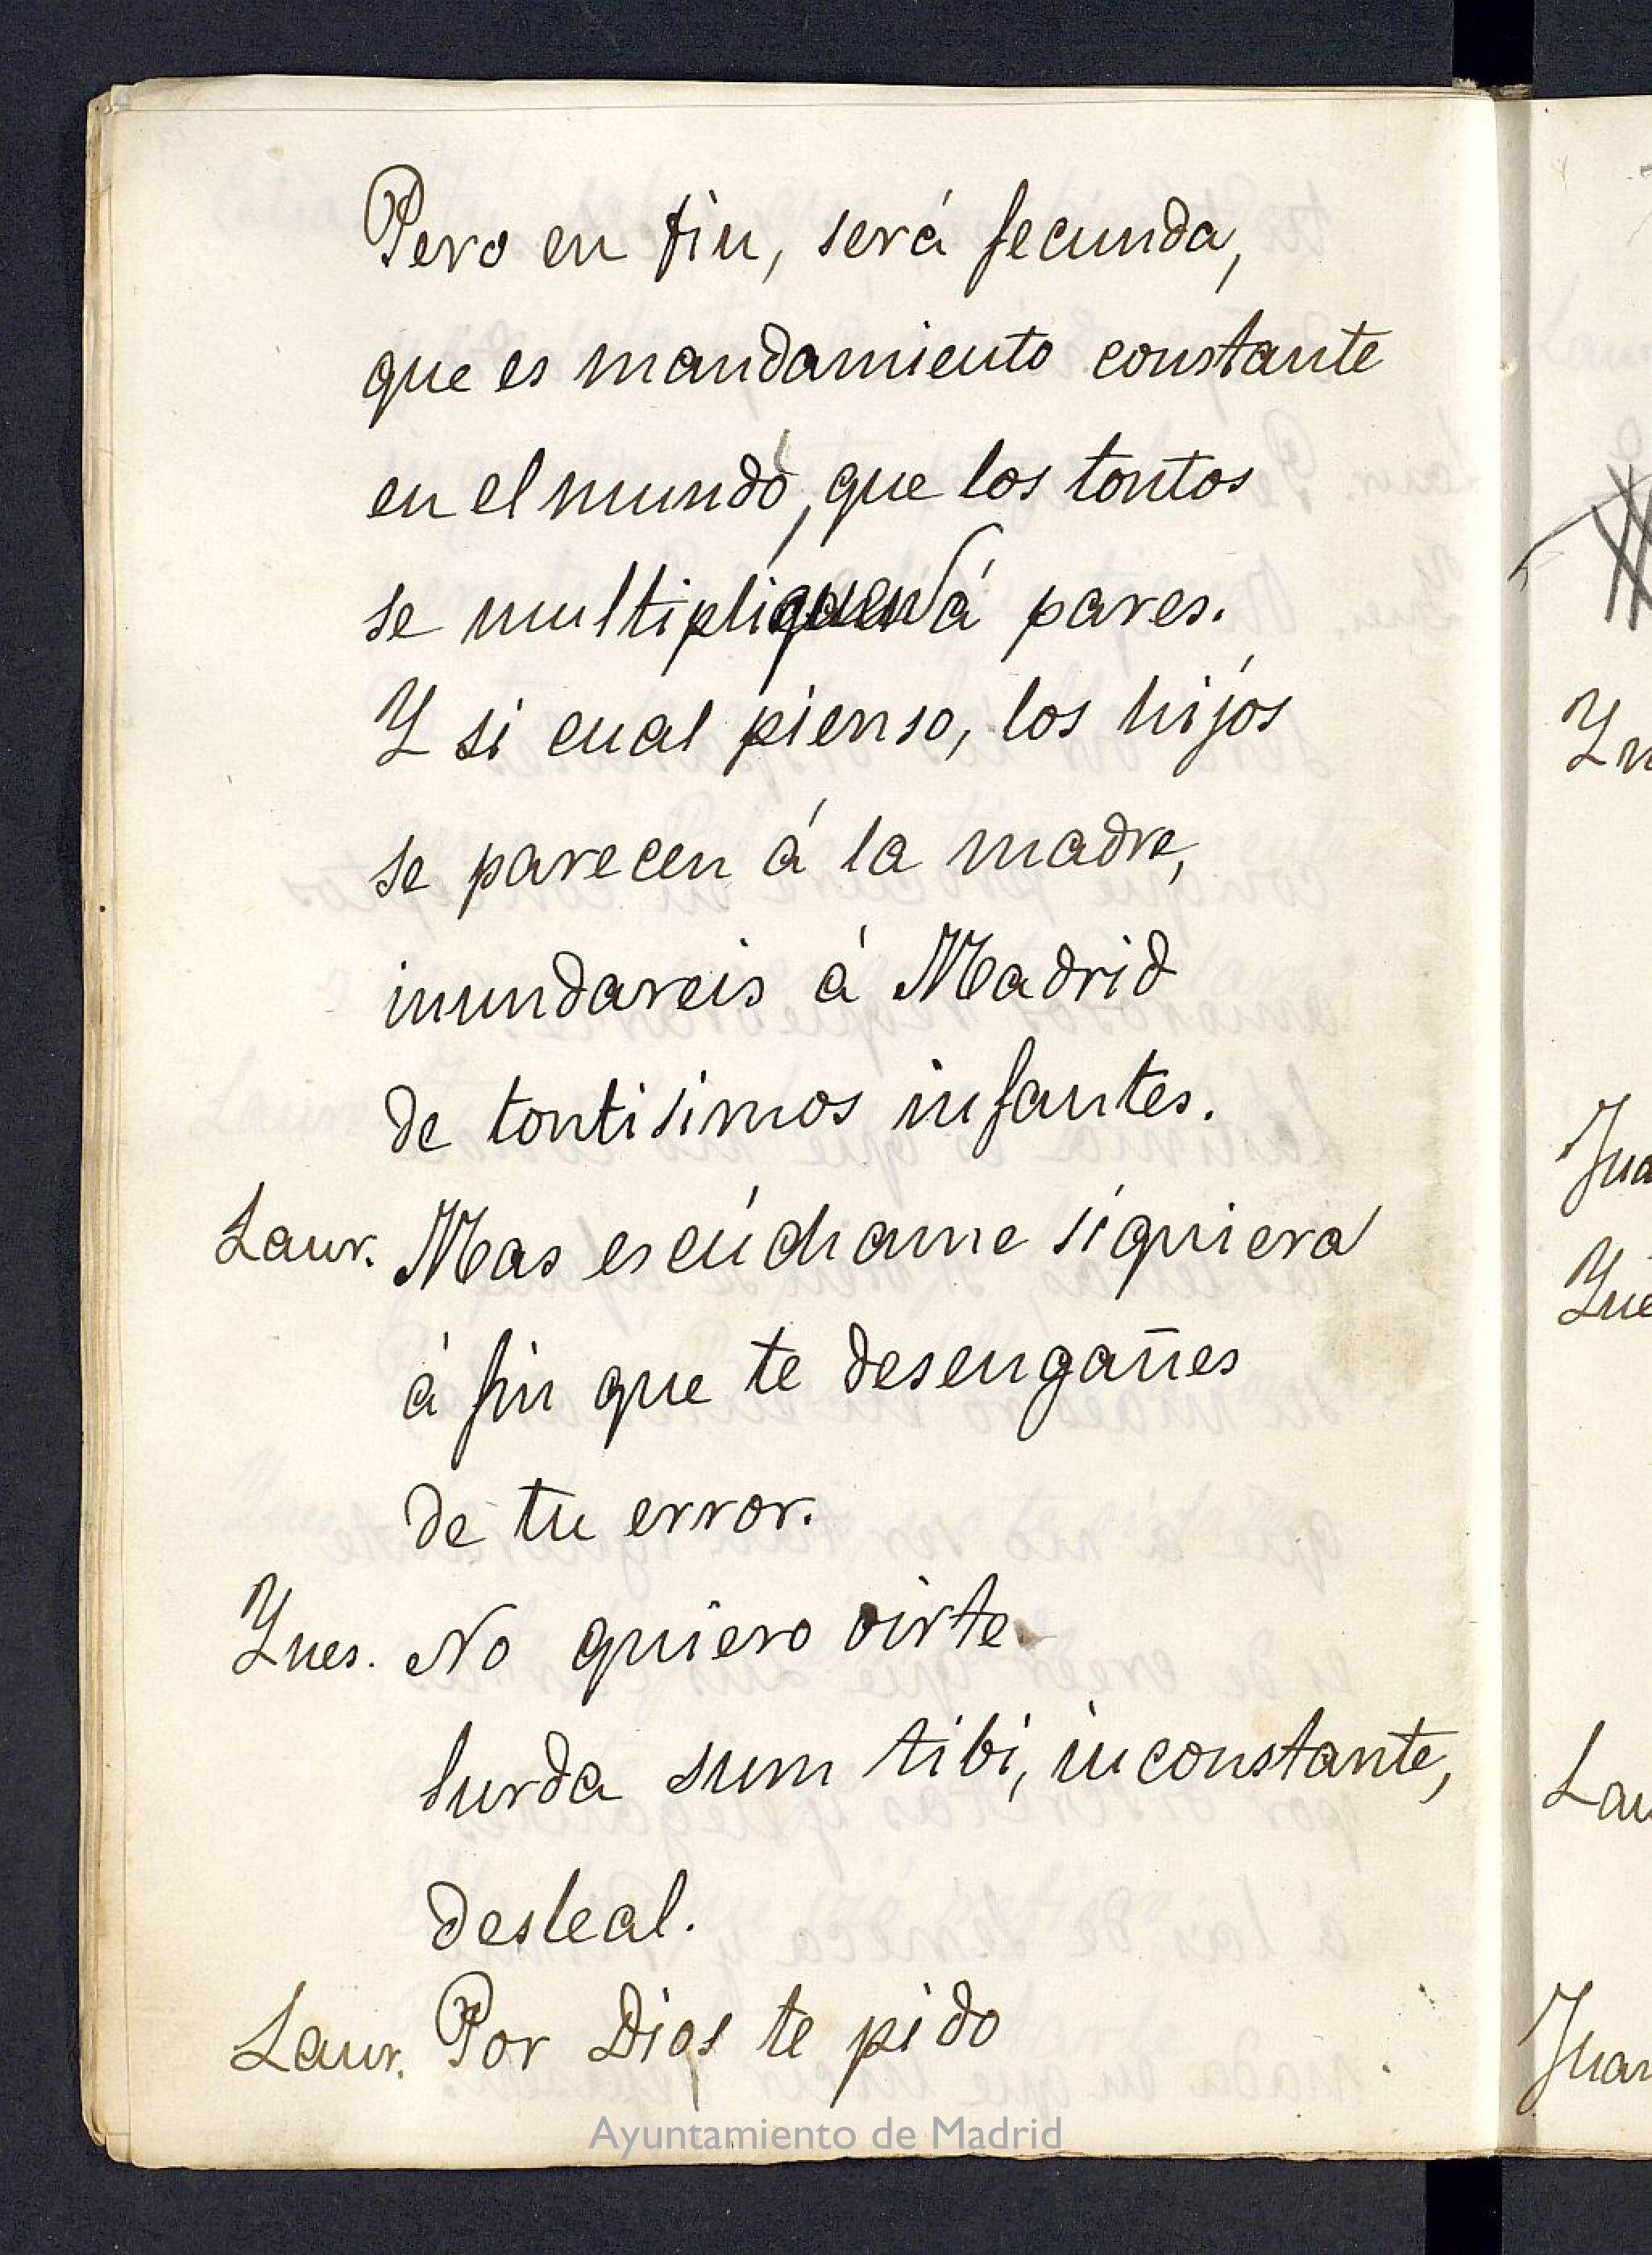 Pero en fin, será fecunda,
que es mandamiento constante
en el mundo, que los tontos
se multipliquen á pares.
Y si cual pienso, los hijos
se parecen á la madre,
inundareis á Madrid
de tontisimos infantes.
Laur. Mas escúchame siquiera
á fin que te desengañes
de tu error.
Ynes. No quiero oirte.
Surda sum tibi, inconstante,
desleal.
Laur. Por Dios te pido
Ayuntamiento de Madrid
Yn
Jua
Yne
Lau
Juan